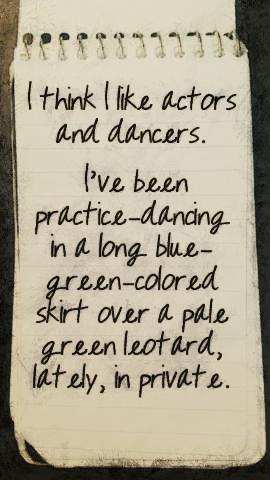 I think I like actors
and dancers.
I've been
practice-dancing
in a long blue-
green-colored
skirt over a pale
green leotard,
lately, in private.